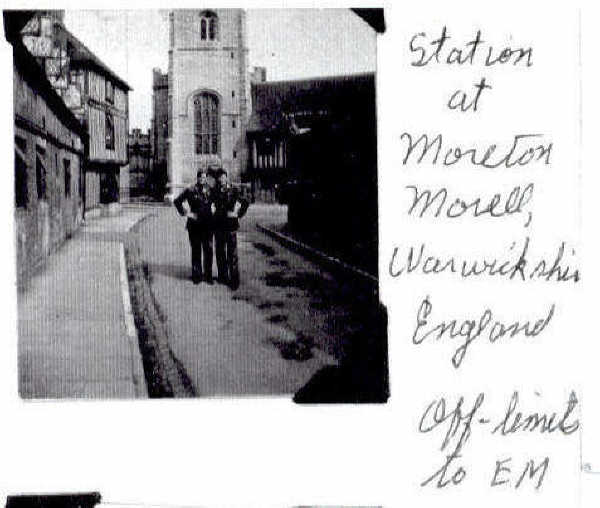 Station
at
Moreton
Morell,
Warwickshir
England
Off-limits
to EM